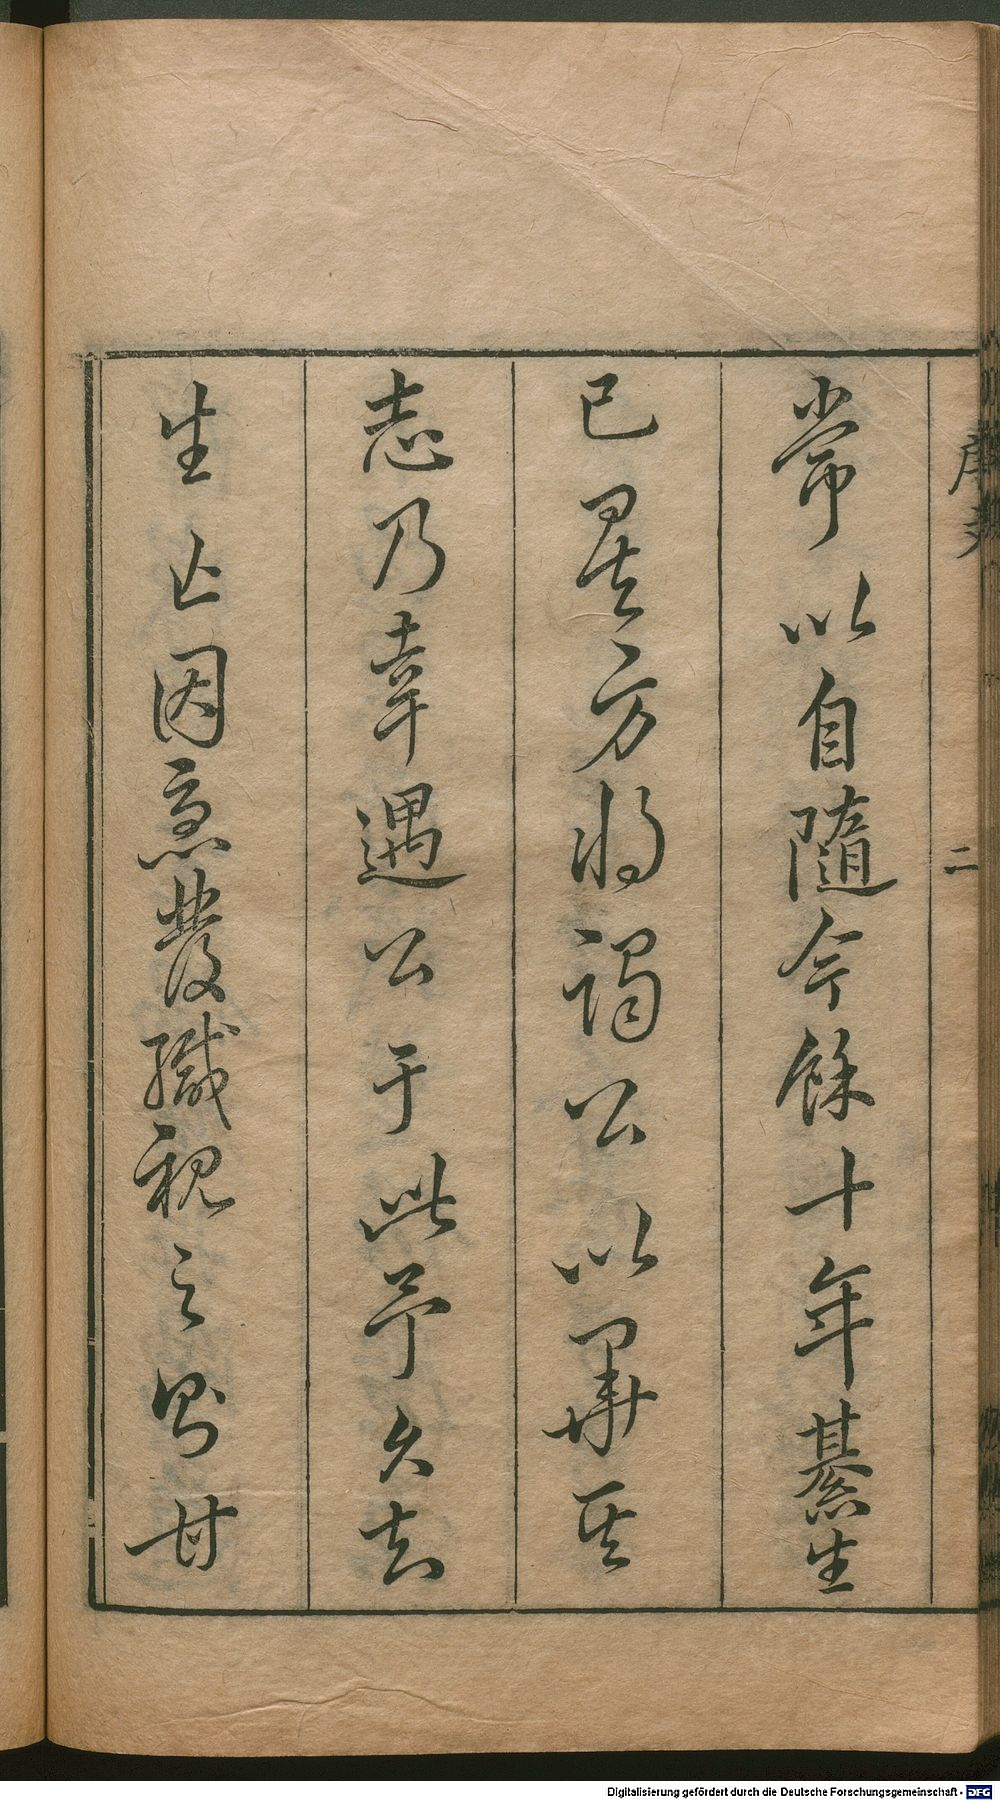 序文 二
常以自隨今餘十年綦生
已方將謁公以畢其
志乃幸遇公于此予久去
生亡因急發緘視之則甘
Digitalisierung gefördert durch die Deutsche Forschungsgemeinschaft - DFG